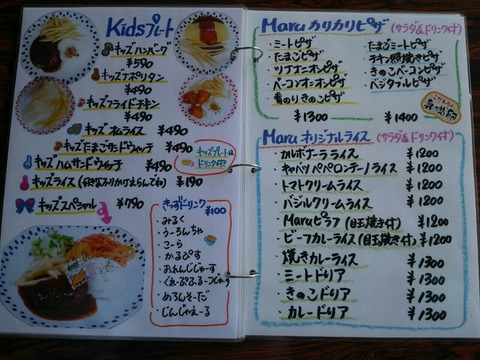 Kidsプレート
キッズハンバーグ
¥590
キッズナポリタン
¥490
キッズフライドチキン
¥490
キッズオムライス ¥490
キッズたまごサンドウィッチ ¥490
キッズハムサンドウィッチ ¥490
キッズライス (好きなふりかけえらんでね) ¥190
キッズスペシャル ¥790
キッズプレートは
ドリンク付
きっずドリンク ¥100
・みるく
・うーろんちゃ
・こーら
・かるぴす
・おれんじじゅーす
・ぐれーぷふるーつじゅーす
・めろんそーだ
・じんじゃえーる
Maru カリカリピザ (サラダ&ドリンク付)
・ミートピザ
・たまごピザ
・ツナオニオンピザ
・ベーコンオニオンピザ
・青のりきのこピザ
¥1300
たまごミートピザ
チキン照焼きピザ
きのこベーコンピザ
ベジタブルピザ
¥1400
Maru オリジナルライス (サラダ&ドリンク付)
・カルボナーラライス ¥1200
・キャベツペペロンチーノライス ¥1200
・トマトクリームライス ¥1200
・バジルクリームライス ¥1200
・Maruピラフ (目玉焼き付) ¥1200
・ビーフカレーライス (目玉焼き付) ¥1200
・焼きカレーライス ¥1300
・ミートドリア ¥1300
・きのこドリア ¥1300
・カレードリア ¥1300